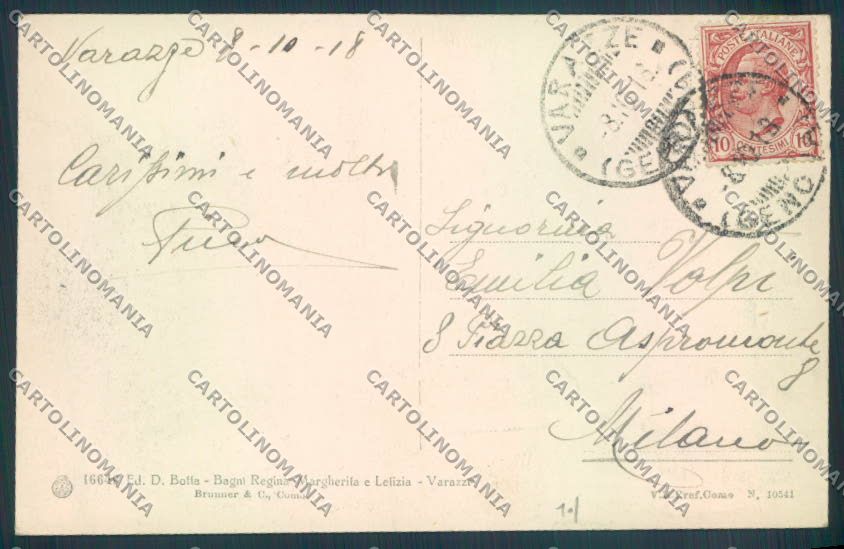 Varazze 8-10-18
Carissimi e molti
Signorina
Emilia Volpi
8 Piazza Aspromonte
8
Milano
POSTE ITALIANE
10 CENTESIMI 10
VARAZZE
(GENOVA)
VARAZZE
(GENOVA)
Ed. D. Botta - Bagni Regina Margherita e Letizia - Varazze
Brunner & C., Como
V. Pref. Como N. 10541
CARTOLINOMANIA